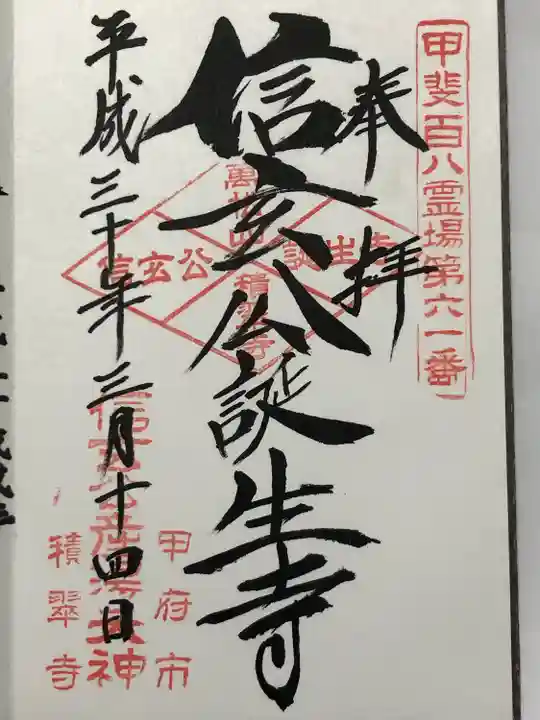 甲斐百八霊場第六一番
奉拝
信玄公誕生寺
信玄公
誕生寺
積翠寺
平成三十年三月十四日
甲府市
積翠寺